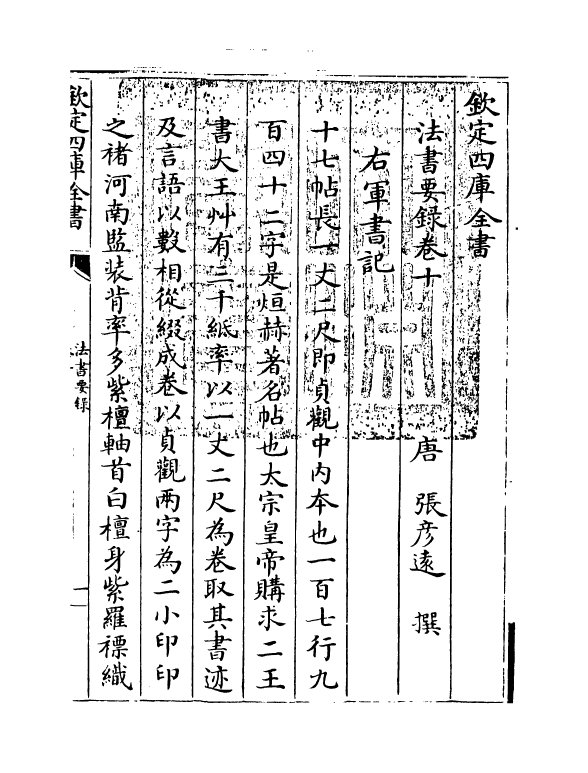 欽定四庫全書
法書要錄卷十
唐 張彥遠 撰
右軍書記
十七帖長一丈二尺即貞觀中内夲也一百七行九
百四十二字是烜赫著名帖也太宗皇帝購求二王
書大王艸有三千紙率以一丈二尺為卷取其書迹
及言語以數相從綴成卷以貞觀兩字為二小印印
之褚河南監裝背率多紫檀軸首白檀身紫羅褾織
欽定四庫全書
法書要錄